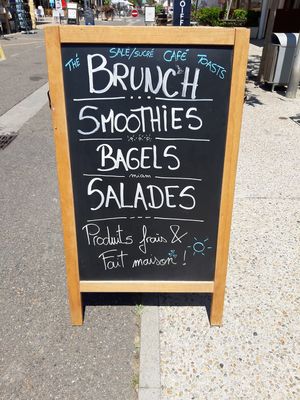 THÉ SALE/SUCRÉ CAFÉ TOASTS
BRUNCH
SMOOTHIES
BAGELS
miam
SALADES
Produits frais &
Fait maison !